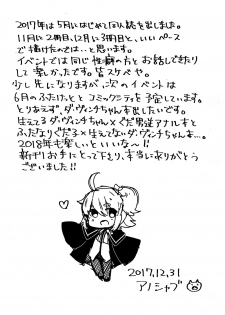 2017年は5月にはじめて同人誌を出しました。
11月に2冊目、12月に3冊目と、いいペース
で描けたのでは…と思います。
イベントでは同じ性癖の方とお話しできたり
して楽しかったです。皆スケベや。
少し先になりますが、次のイベントは
6月のふたけっととコミックシティを予定しています。
とりあえず、ダ・ヴィンチちゃん本出したいです。
生えてるダ・ヴィンチちゃん×ぐだ男逆アナルすと
ふたなりぐだ子×生えてないダ・ヴィンチちゃんよ…。
2018年も楽しいといいな〜!!
新刊お手にとって下さり、本当にありがとう
ございました!!
2017.12.31
アノシャブ